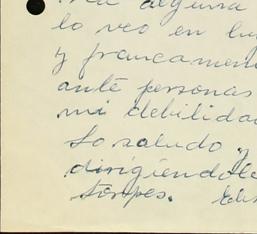 alguna
lo veo en
y francamen
ante personas
mi debilidad
Lo saludo y
dirigiéndole
torpes.